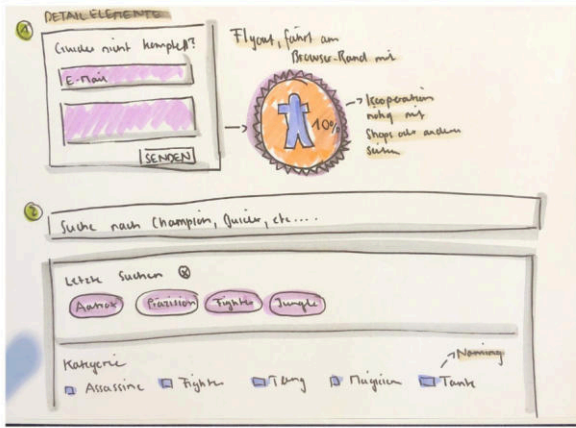 DETAIL ELEMENTE
1
Guide nicht komplett?
E-Mail
SENDEN
Flyout, fährt am
Browser-Rand mit
10%
Kooperation
nötig mit
Shops oder anderen
Seiten
2
Suche nach Champion, Guides, etc....
Letzte Suchen
Aatrox Präzision Fighter Jungle
Kategorie
Naming
Assassine Fighter Magician Tank